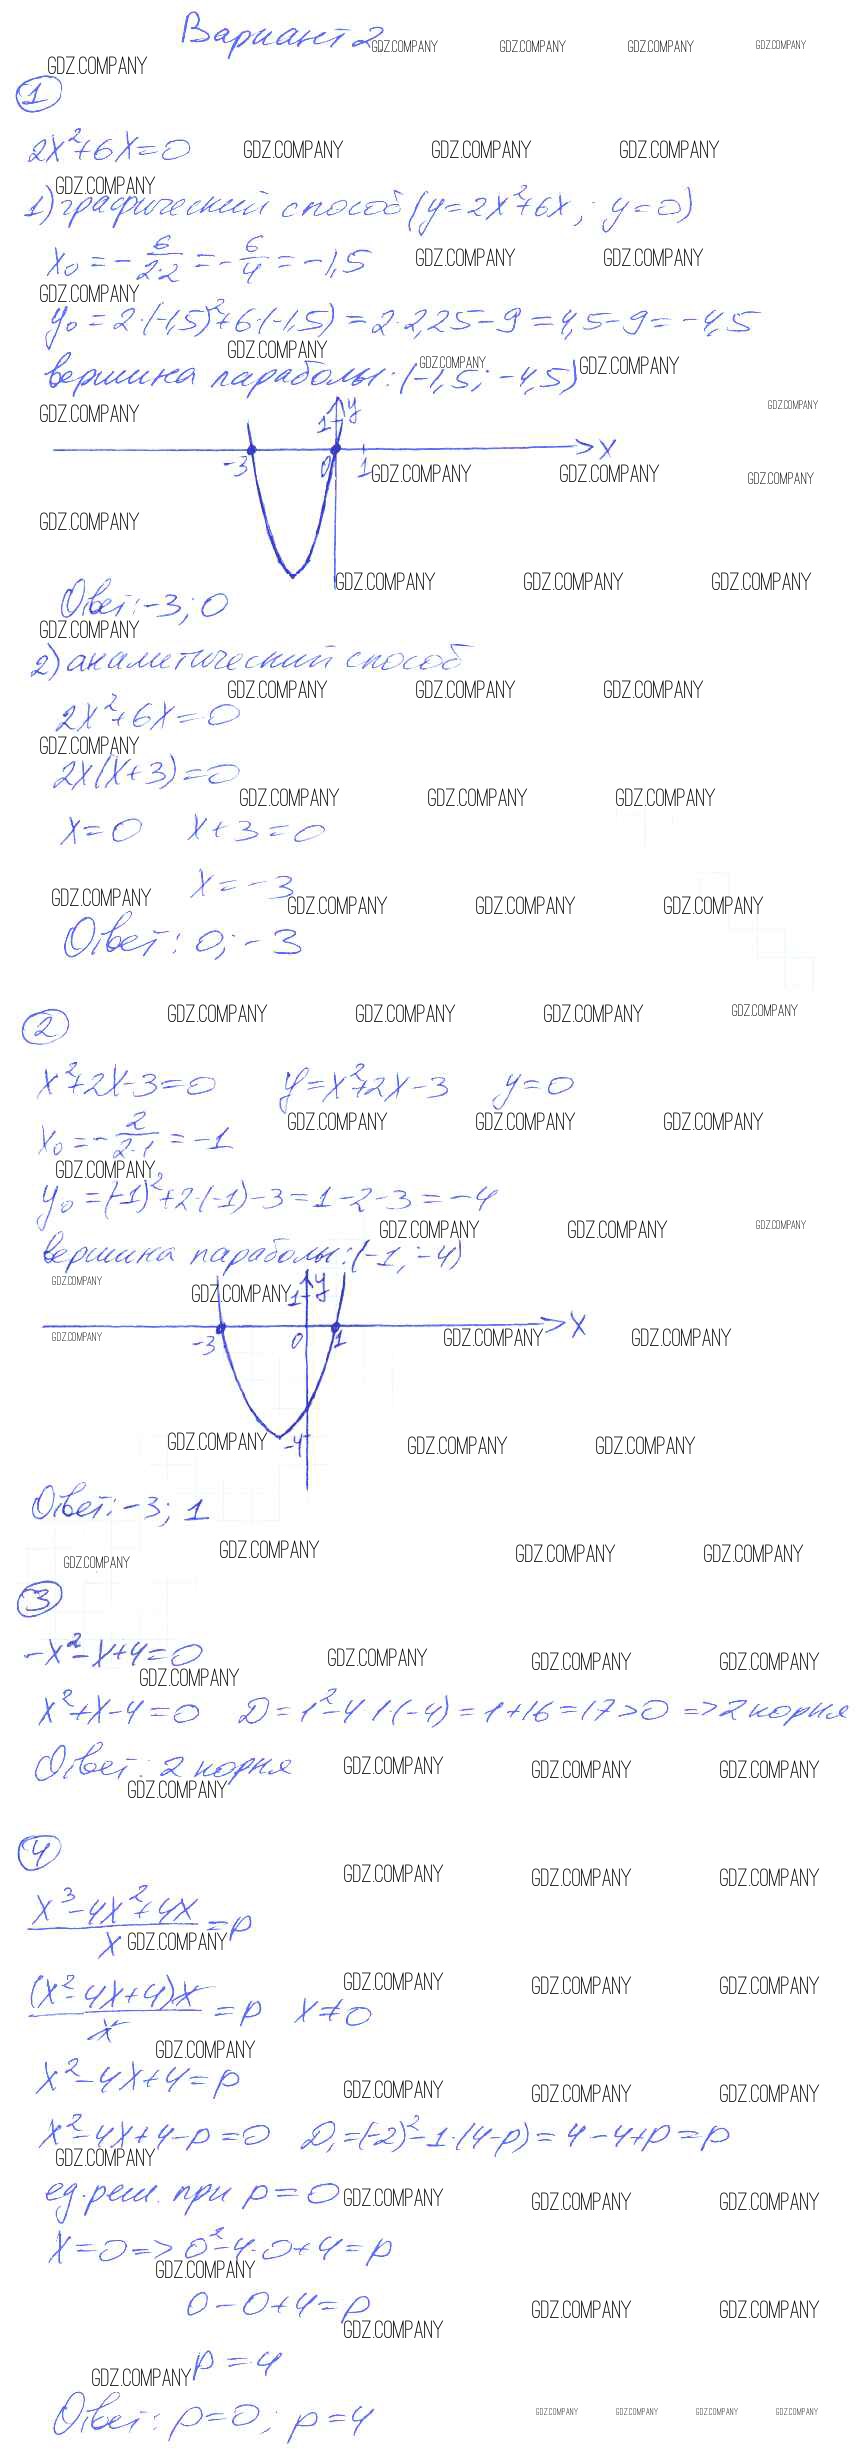 Вариант 2
1
2x²+6x=0
1) графический способ (y=2x²+6x; y=0)
x₀ = -6/(2·2) = -6/4 = -1,5
y₀ = 2·(-1,5)²+6·(-1,5) = 2·2,25-9 = 4,5-9 = -4,5
вершина параболы: (-1,5; -4,5)
y
1
-3 0 1 x
Ответ: -3; 0
2) аналитический способ
2x²+6x=0
2x(x+3)=0
x=0 x+3=0
x=-3
Ответ: 0; -3
2
x²+2x-3=0 y=x²+2x-3 y=0
x₀ = -2/(2·1) = -1
y₀ = (-1)²+2·(-1)-3 = 1-2-3 = -4
вершина параболы: (-1; -4)
y
1
-3 0 1 x
-4
Ответ: -3; 1
3
-x²-x+4=0
x²+x-4=0 D=1²-4·1·(-4)=1+16=17>0 => 2 корня
Ответ: 2 корня
4
(x³-4x²+4x)/x = p
((x²-4x+4)x)/x = p x≠0
x²-4x+4=p
x²-4x+4-p=0 D₁=(-2)²-1·(4-p)=4-4+p=p
ед. реш. при p=0
x=0 => 0²-4·0+4=p
0-0+4=p
p=4
Ответ: p=0; p=4
GDZ.COMPANY